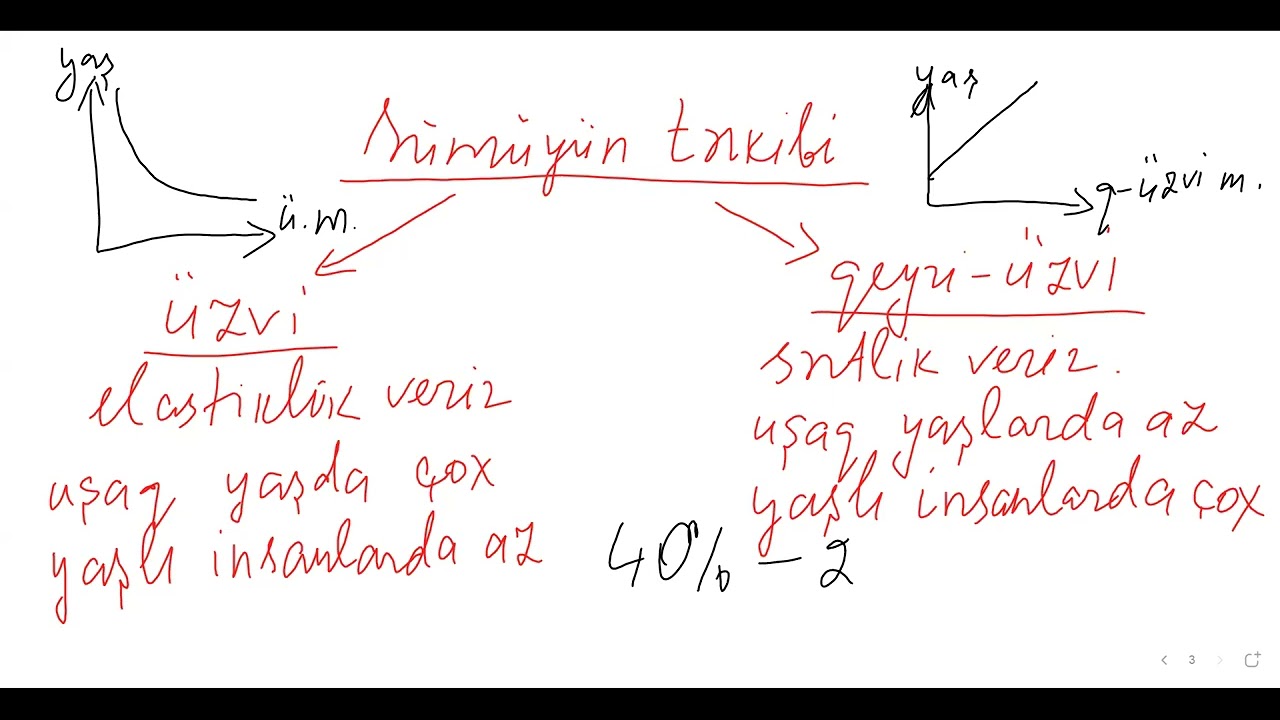 yaş
ü.m.
Sümüyün tərkibi
yaş
q-üzvi m.
üzvi
elastiklik verir
uşaq yaşda çox
yaşlı insanlarda az
qeyri-üzvi
sərtlik verir.
uşaq yaşlarda az
yaşlı insanlarda çox
40% - 2
3